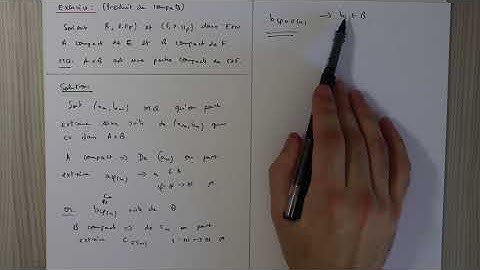 Exercice : (Produit de compacts)
Soient (E, ||.||E) et (F, ||.||F) deux Evn
A compact de E et B compact de F
MQ: A × B est une partie compacte de E×F.
Solution:
Soit (an, bn) MQ qu'on peut
extraire une suite de (an, bn) qui
cv dans A×B
A compact => De (an) on peut
extraire aφ(n) → a ∈ A
φ: N → N
Cn
or bφ(n) suite de B
B compact => de cn on peut
extraire
→ b ∈ B